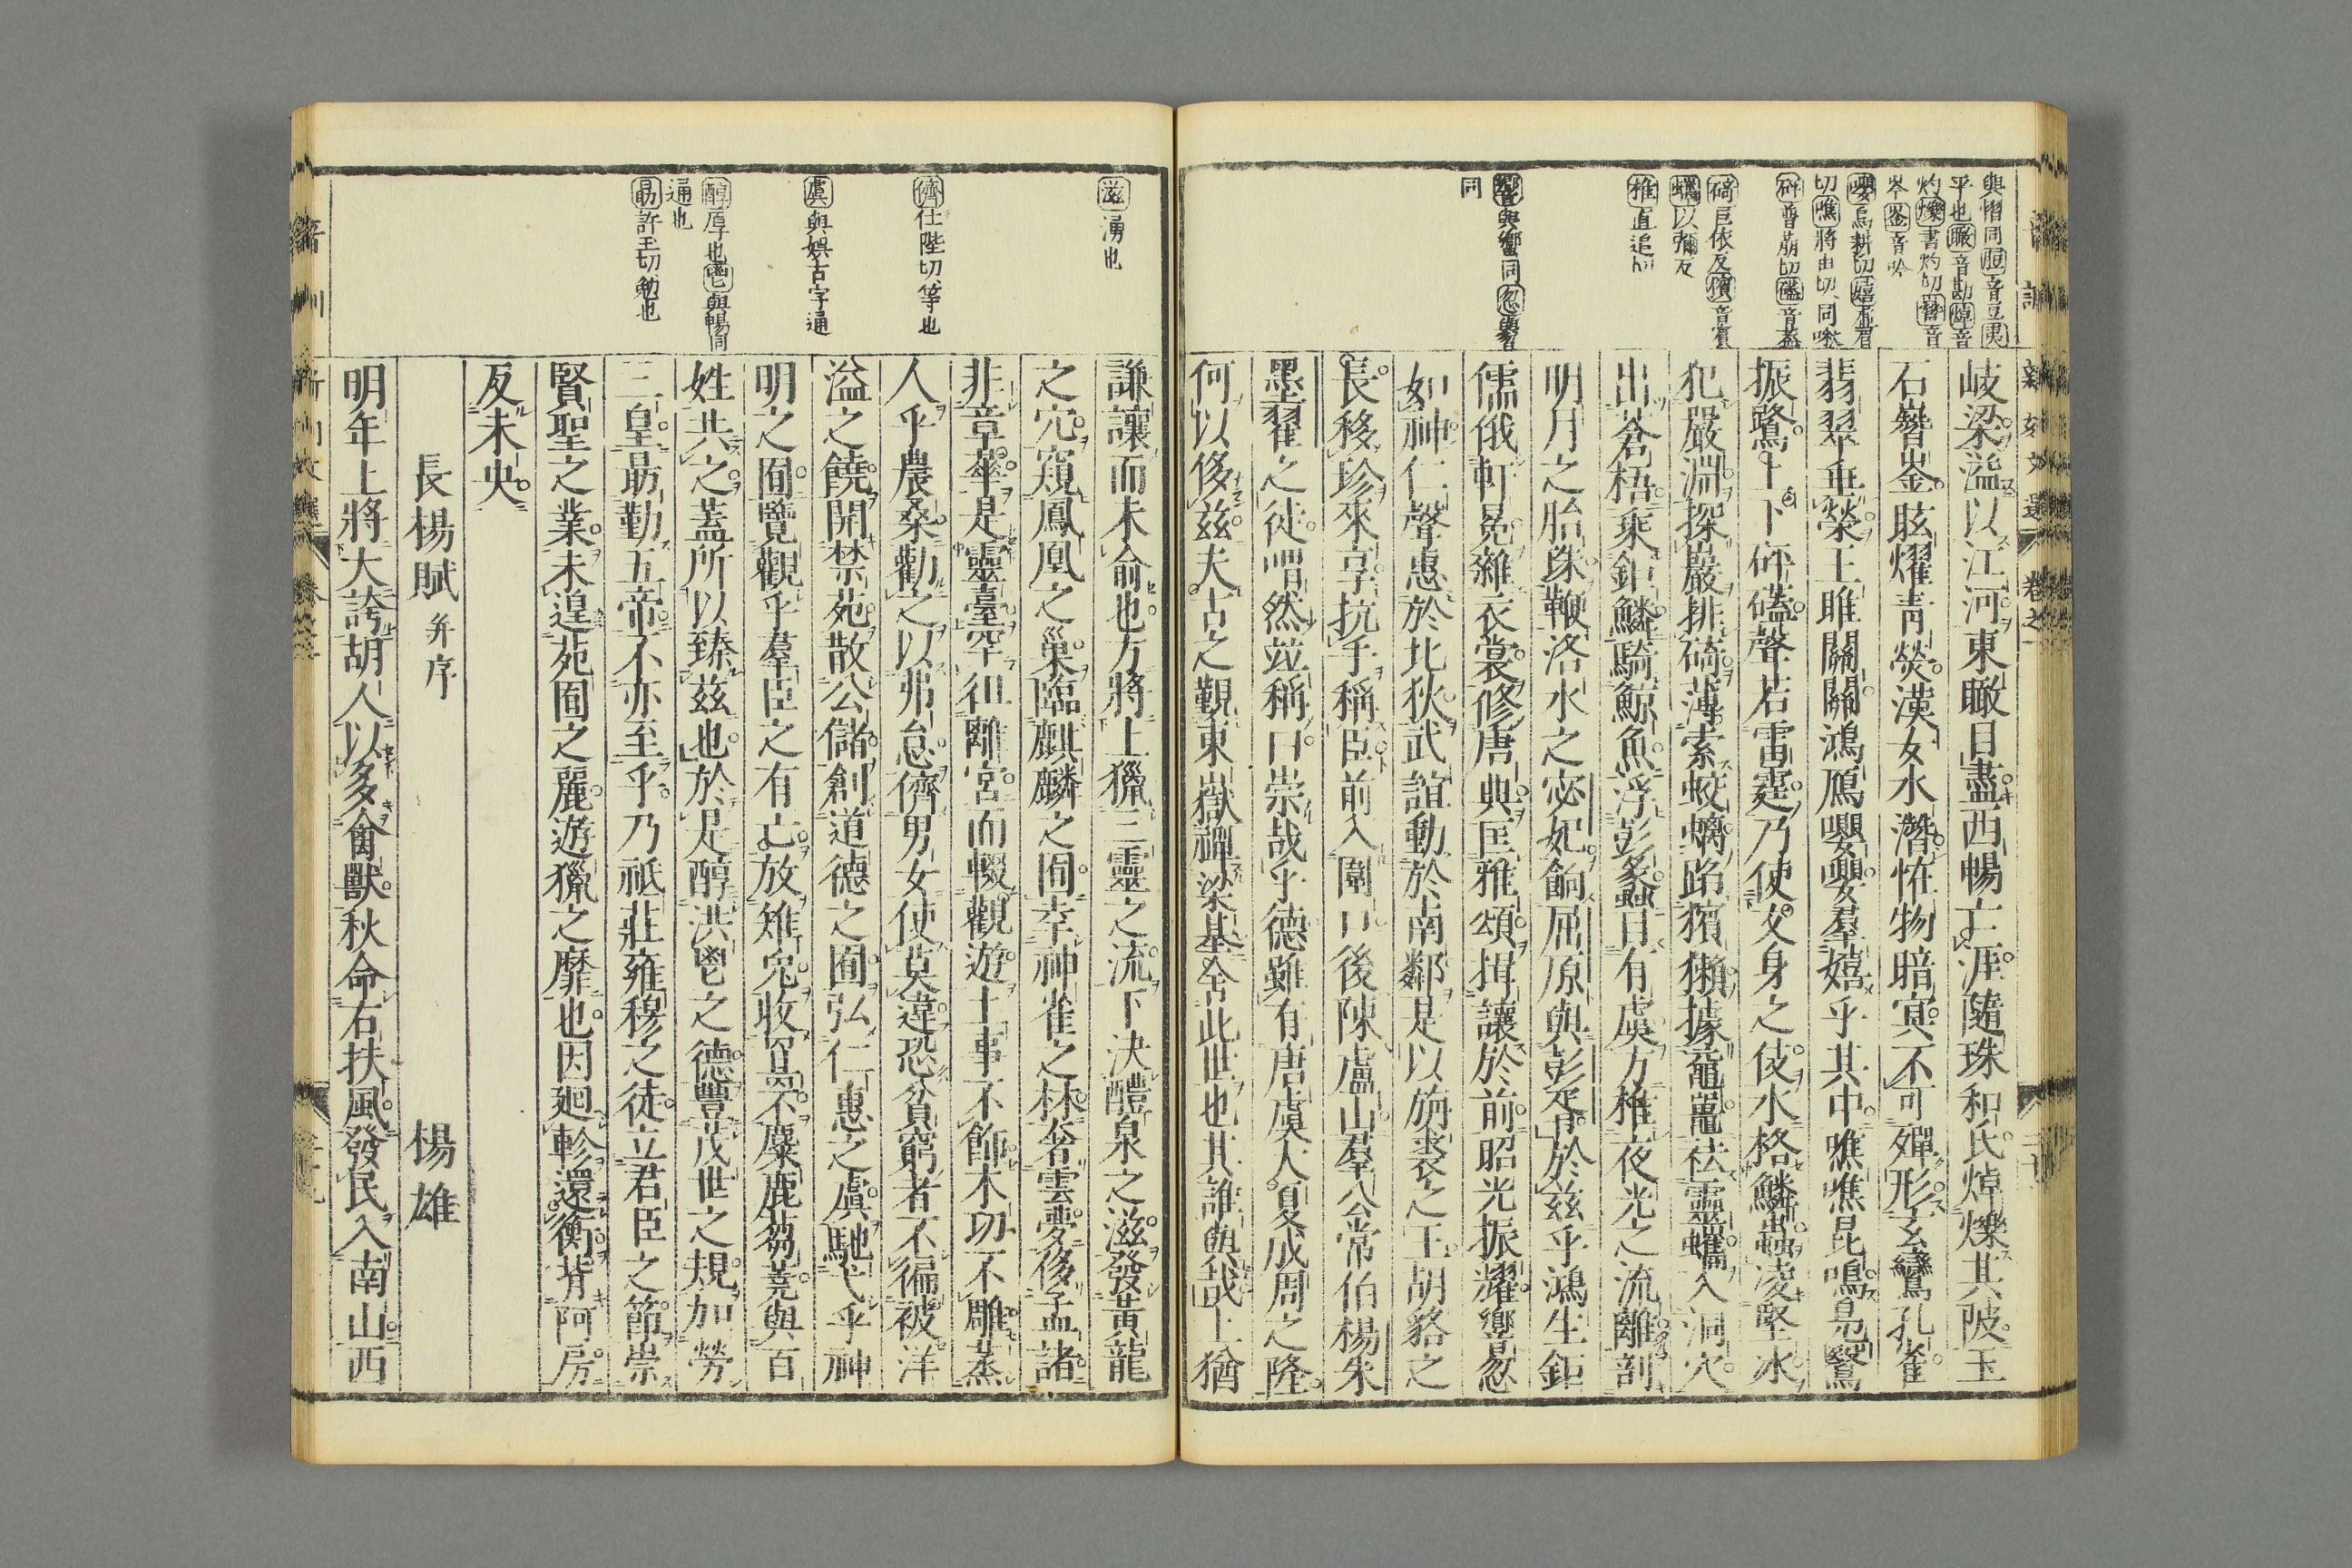 與慴同胆音豆夷
平也瞰音勘焯音
灼爍書灼切嶜音
岑崟音吟
嚶烏耕切嬉求眉
切噍將由切同啾
砰普萌切磕音荅
碕巨依反獱音賓
蠵以彌反
椎直追切
響與嚮同忽與曶
同
岐梁溢以江河東瞰目盡西暢亡涯隨珠和氏焯爍其陂玉
石嶜崟眩燿青熒漢女水潛怪物暗冥不可殫形玄鸞孔雀
翡翠垂榮王雎關關鴻鴈嚶嚶羣嬉乎其中噍噍昆鳴鳧鷖
振鷺上下砰磕聲若雷霆乃使文身之伎水格鱗蟲凌堅冰
犯嚴淵探巖排碕薄索蛟螭蹈獱獺據黿鼉袪靈蠵入洞穴
出蒼梧乘鉅鱗騎鯨魚浮彭蠡目有虞方椎夜光之流離剖
明月之胎珠鞭洛水之宓妃餉屈原與彭胥於兹乎鴻生鉅
儒俄軒冕雜衣裳修唐典匡雅頌揖讓於前昭光振燿響忽
如神仁聲惠於北狄武誼動於南鄰是以旃裘之王胡貉之
長移珍來享抗手稱臣前入圍口後陳盧山羣公常伯楊朱
墨翟之徒喟然並稱曰崇哉乎德雖有唐虞大夏成周之隆
何以侈兹夫古之覲東嶽禪梁基舍此世也其誰與哉上猶
滋湧也
儕仕陛切等也
虞與娯古字通
醇厚也鬯與暢同
通也
勗許玉切勉也
謙讓而未俞也方將上獵三靈之流下決醴泉之滋發黃龍
之穴窺鳳凰之巢臨麒麟之囿幸神雀之林奢雲夢侈孟諸
非章華是靈臺罕徂離宮而輟觀遊土事不飾木功不雕蒸
人乎農桑勸之以弗怠儕男女使莫違恐貧窮者不徧被洋
溢之饒開禁苑散公儲創道德之囿弘仁惠之虞馳弋乎神
明之囿覽觀乎羣臣之有亡放雉兔收罝罘麋鹿芻蕘與百
姓共之蓋所以臻兹也於是醇洪鬯之德豐茂世之規加勞
三皇勗勤五帝不亦至乎乃祗莊雍穆之徒立君臣之節崇
賢聖之業未遑苑囿之麗遊獵之靡也因廻軫還衡背阿房
反未央
長楊賦 并序 楊雄
明年上將大誇胡人以多禽獸秋命右扶風發民入南山西